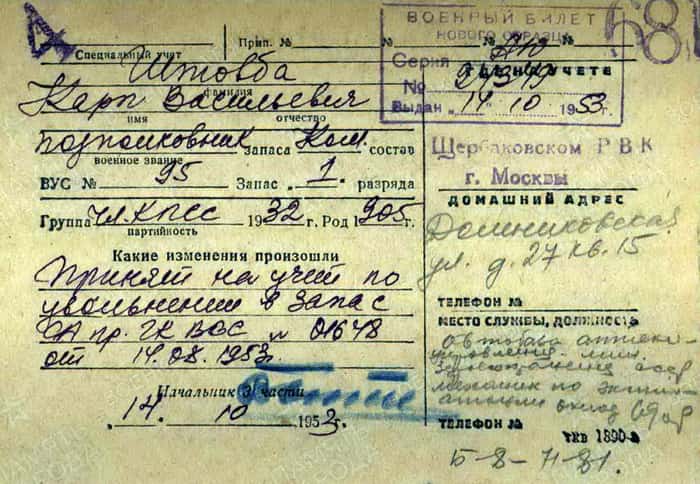 Специальный учет
Прип. №
Штовба
фамилия
Карп Васильевич
имя отчество
подполковник запаса Ком. состав
военное звание
ВУС № 95 Запас 1. разряда
Группа чл. КПСС 1932 г. Род 1905
партийность
Какие изменения произошли
Принят на учет по
увольнении в запас
СА пр. ГК ВОС № 01648
от 14.08.1953г.
Начальник 3 части
"14. 10 1953г.
ВОЕННЫЙ БИЛЕТ
НОВОГО ОБРАЗЦА
Серия
№
Выдан „ 14 " 10 1953 г.
УЧЕТЕ
Щербаковском РВК
г. Москвы
ДОМАШНИЙ АДРЕС
ул. д. 27 кв. 15
ТЕЛЕФОН №
МЕСТО СЛУЖБЫ, ДОЛЖНОСТЬ
Автобаза
управления мин.
механик по
оклад
ТЕЛЕФОН № 1890
Б-8-71-81.